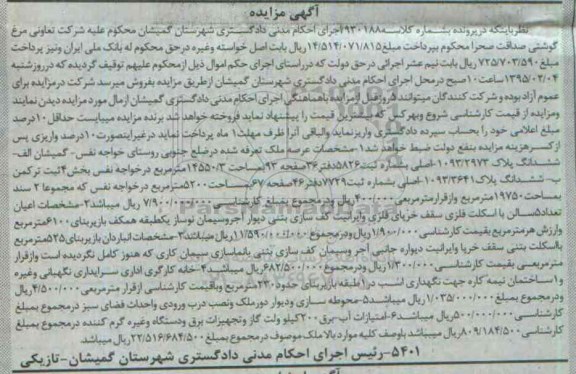 آگهی مزایده
نظر باینکه در پرونده بشماره کلاسه ۹۳۰۱۸۸ اجرای احکام مدنی دادگستری شهرستان گمیشان محکوم علیه شرکت تعاونی مرغ
گوشتی صداقت صحرا محکوم بپرداخت مبلغ ۱۴/۵۱۴/۰۷۱/۸۱۵ ریال بابت اصل خواسته وغیره در حق محکوم له بانک ملی ایران ونیز پرداخت
مبلغ ۷۲۵/۷۰۳/۵۹۰ ریال بابت نیم عشر اجرائی در حق دولت که در راستای اجرای حکم اموال ذیل از محکوم علیهم توقیف گردیده که در روز شنبه
۱۳۹۵/۰۳/۰۴ ساعت ۱۰ صبح در محل اجرای احکام مدنی دادگستری شهرستان گمیشان از طریق مزایده بفروش میرسد شرکت در مزایده برای
عموم آزاد بوده و شرکت کنندگان میتوانند ۵ روز قبل از مزایده باهماهنگی اجرای احکام مدنی دادگستری گمیشان از مال مورد مزایده دیدن نمایند
ومزایده از قیمت کارشناسی شروع وبهرکس که بالاترین قیمت را پیشنهاد نماید فروخته خواهد شد برنده مزایده میبایست حداقل ۱۰درصد
مبلغ اعلامی خود را بحساب سپرده دادگستری واریز نماید والباقی آنرا ظرف مهلت ۱ ماه پرداخت نماید در غیر اینصورت ۱۰درصد واریزی پس
از کسر هزینه مزایده بنفع دولت ضبط خواهد شد ۱-مشخصات عرصه ملک تعرفه شده در ضلع جنوبی روستای خواجه نفس- گمیشان الف-
ششدانگ پلاک ۱۰۹۳/۲۹۷۳-اصلی بشماره ثبت ۵۸۲۶ دفتر ۳۶ صفحه ۹۳ مساحت ۱۴۵۵۰/۳ مترمربع در خواجه نفس بخش ۴ ثبت ترکمن
ب-ششدانگ پلاک ۱۰۹۳/۳۶۴۱-اصلی بشماره ثبت ۷۷۲۹ دفتر ۴۶ صفحه ۶۷ بمساحت ۵۲۰۰ مترمربع در خواجه نفس که مجموعا ۲ سند
بمساحت ۱۹۷۵۰ مترمربع وازقرار مترمربعی ۴۰۰/۰۰۰ ریال ودر مجموع بمبلغ کارشناسی ۷/۹۰۰/۰۰۰/۰۰۰ ریال میباشد ۲-مشخصات اعیان
تعداد ۵ سالن با اسکلت فلزی سقف خرپای فلزی وایرانیت کف سازی بتنی دیوار آجر وسیمان نوساز یکطبقه همکف بازیربنای ۶۱۰۰ مترمربع
وارزش هر مترمربع بقیمت کارشناسی ۱/۹۰۰/۰۰۰ ریال ودر مجموع ۱۱/۵۹۰/۰۰۰/۰۰۰ ریال میباشد ۳-مشخصات انباردان بازیربنای ۵۲۵ مترمربع
بااسکلت بتنی سقف خرپا وایرانیت دیواره جانبی آجر وسیمان کف سازی بتنی بانماسازی سیمان کاری که هنوز کامل نگردیده است وازقرار
مترمربعی بقیمت کارشناسی ۱/۳۰۰/۰۰۰ ریال ودر مجموع ۶۸۲/۵۰۰/۰۰۰ ریال میباشد ۴-خانه کارگری اداری سرایداری نگهبانی وغیره
و۱ساختمان نیمه کاره جهت نگهداری اسب در ۱ طبقه بازیربنای حدود ۲۳۰ مترمربع وباقیمت کارشناسی ازقرار مترمربعی ۴/۵۰۰/۰۰۰ ریال
ودر مجموع بمبلغ ۱/۰۳۵/۰۰۰/۰۰۰ ریال میباشد ۵-محوطه سازی ودیوار دور ملک ونصب درب ورودی واحداث فضای سبز در مجموع بمبلغ
کارشناسی ۵۰۰/۰۰۰/۰۰۰ ریال میباشد ۶-امتیازات آب-برق ۲۰۰ کیلو ولت گاز وتجهیزات برق ودستگاه وغیره گرم کننده در مجموع بمبلغ
کارشناسی ۸۰۹/۱۸۴/۵۰۰ ریال میباشد باوصف کلیه موارد بالا ملک موصوف در مجموع بمبلغ ۲۲/۵۱۶/۶۸۴/۵۰۰ ریال میباشد.
۵۴۰۱-رئیس اجرای احکام مدنی دادگستری شهرستان گمیشان-تازیکی